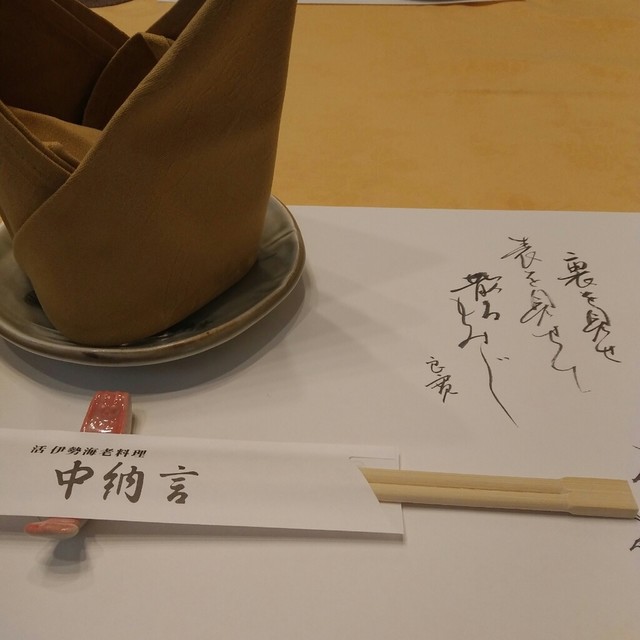 裏を見せ
表を見せて
散るもみじ
良寛
活伊勢海老料理
中納言